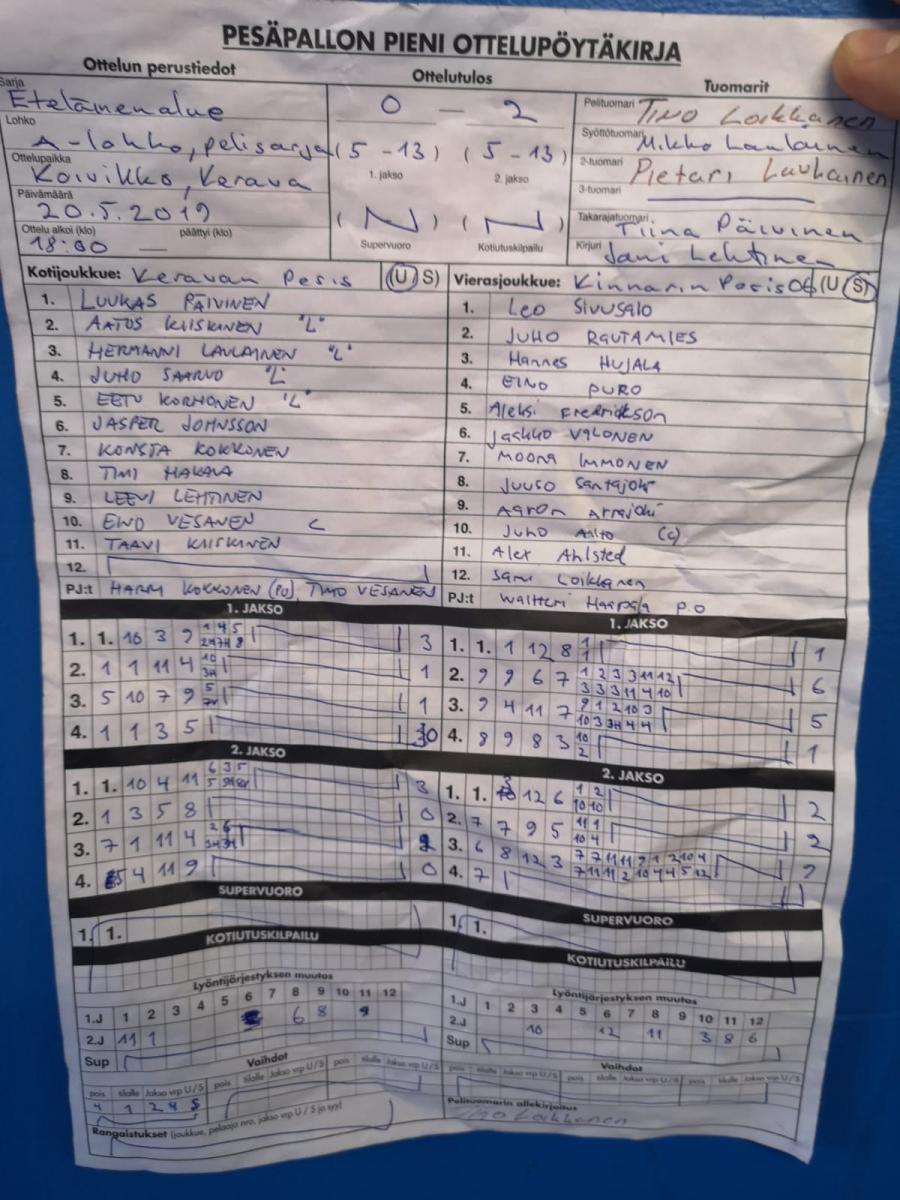 PESÄPALLON PIENI OTTELUPÖYTÄKIRJA
Ottelun perustiedot
Sarja
Etelänenalue
Lohko
A-lohko, pelisarja
Ottelupaikka
Koivikko, Kerava
Päivämäärä
20.5.2019
Ottelu alkoi (klo) päättyi (klo)
18:00 —
Ottelutulos
0 — 2
(5 - 13) (5 - 13)
1. jakso 2. jakso
Supervuoro Kotiutuskilpailu
Tuomarit
Pelituomari Tino Loikkanen
Syöttötuomari Mikko Laulainen
2-tuomari Pietari Laukainen
3-tuomari
Takarajatuomari Tiina Päivinen
Kirjuri Jani Lehtinen
Kotijoukkue: Keravan Pesis (U S)
1. LUUKAS PÄIVINEN
2. AATOS KIISKINEN "L"
3. HERMANNI LAULAINEN "L"
4. JUHO SAARVO "L"
5. EETU KORHONEN "L"
6. JASPER JOHNSSON
7. KONSTA KOKKONEN
8. TIMI HAKALA
9. LEEVI LEHTINEN
10. EINO VESANEN C
11. TAAVI KIISKINEN
12.
PJ:t HARRI KOKKONEN (PU), TIMO VESANEN
Vierasjoukkue: Kinnarin Pesis 06 (U S)
1. Leo SIVUSALO
2. JUHO RAUTAMIES
3. Hannes HUJALA
4. EINO PURO
5. Aleksi Fredrikson
6. Jaakko VALONEN
7. MOONA IMMONEN
8. JUUSO Santajoki
9. Aaron Arrajoki
10. Juho Aalto (C)
11. Alex Ahlsted
12. Sami Loikkanen
PJ:t Waltteri Haapala P.O
1. JAKSO
1. 1. 10 3 9 1 4 5 3
2. 1 1 11 4 10 1
3. 5 10 7 9 5 1
4. 1 1 3 5 0
2. JAKSO
1. 1. 10 4 11 6 3 5 3
2. 1 3 5 8 0
3. 7 1 11 4 2 6 2
4. 5 4 11 9 0
SUPERVUORO
1. 1.
KOTIUTUSKILPAILU
Lyöntijärjestyksen muutos
1 2 3 4 5 6 7 8 9 10 11 12
1.J 6 8 9
2.J 11 1
Sup
Vaihdot
pois tilalle Jakso vrp U/S pois tilalle Jakso vrp U/S pois tilalle Jakso vrp U/S
4 1 2 4 S
Rangaistukset (joukkue, pelaaja nro, jakso vrp U / S ja syy)
1. JAKSO
1. 1. 1 12 8 1 1
1
2. 9 9 6 7 1 2 3 3 11 12 6
3 3 3 11 4 10
3. 9 4 11 7 9 1 2 10 3 5
10 3 3H 4 4
4. 8 9 8 3 10 1
2
2. JAKSO
1. 1. 3 12 6 1 2 2
10 10
2. 7 7 9 5 11 1 2
10 4
3. 6 8 12 3 7 7 11 11 9 1 2 10 4
7 11 11 2 10 4 4 5 12
4. 7
SUPERVUORO
1. 1.
KOTIUTUSKILPAILU
Lyöntijärjestyksen muutos
1 2 3 4 5 6 7 8 9 10 11 12
1.J
2.J 10 12 11 3 8 6
Sup
Vaihdot
pois tilalle Jakso vrp U/S pois tilalle Jakso vrp U/S pois tilalle Jakso vrp U/S
Pelituomarin allekirjoitus
Tino Loikkanen